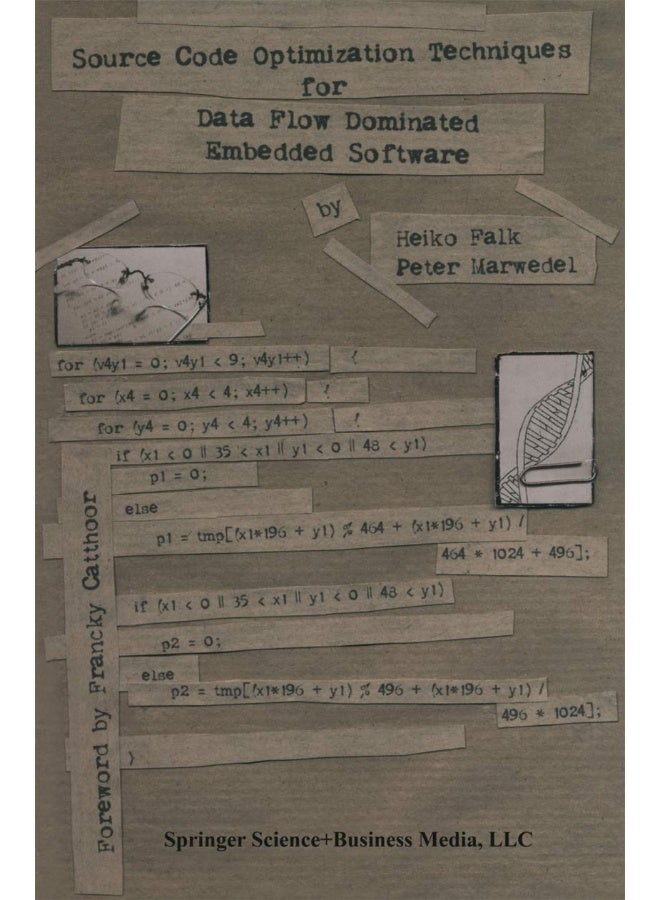 Source Code Optimization Techniques
for
Data Flow Dominated
Embedded Software
by
Heiko Falk
Peter Marwedel
for (v4y1 = 0; v4y1 < 9; v4y1++) {
for (x4 = 0; x4 < 4; x4++) {
for (y4 = 0; y4 < 4; y4++) {
if (x1 < 0 || 35 < x1 || y1 < 0 || 48 < y1)
p1 = 0;
else
p1 = tmp[(x1*196 + y1) % 464 + (x1*196 + y1) /
464 * 1024 + 496];
if (x1 < 0 || 35 < x1 || y1 < 0 || 48 < y1)
p2 = 0;
else
p2 = tmp[(x1*196 + y1) % 496 + (x1*196 + y1) /
496 * 1024];
}
Foreword by Francky Catthoor
Springer Science+Business Media, LLC